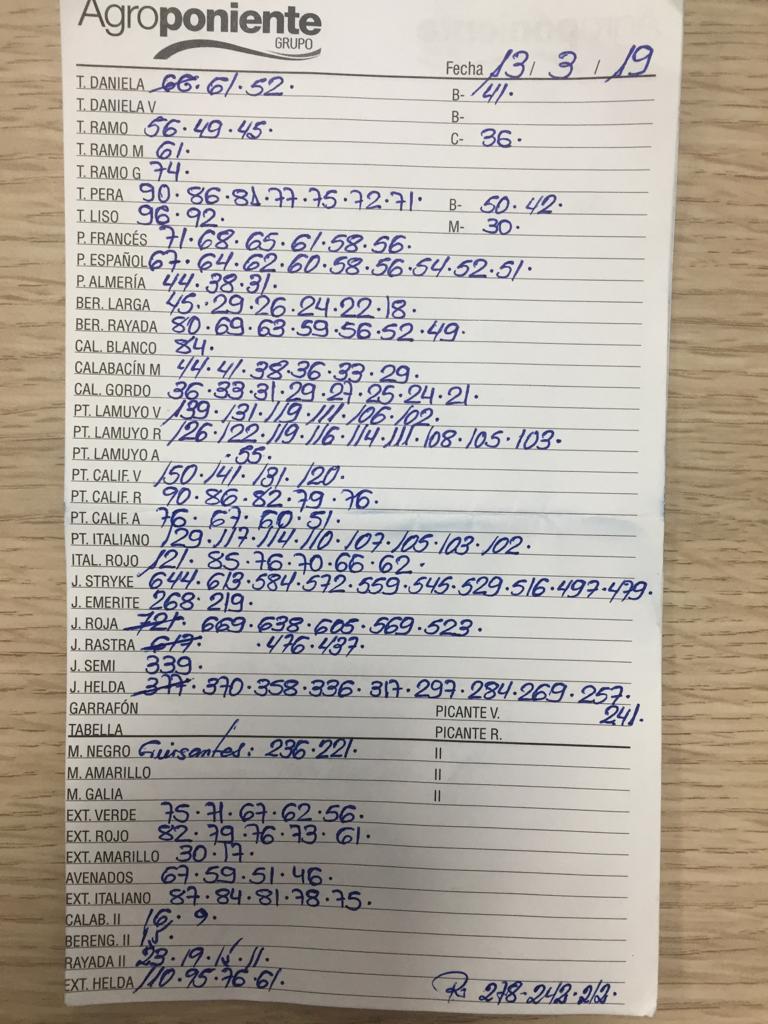 Agroponiente
GRUPO
Fecha 13/ 3 / 19
T. DANELA 66·61·52· B- 41·
T. DANIELA V B-
T. RAMO 56·49·45· C- 36·
T. RAMO M 61·
T. RAMO G 74·
T. PERA 90·86·81·77·75·72·71· B- 50·42·
T. LISO 96·92· M- 30·
P. FRANCÉS 71·68·65·61·58·56·
P. ESPAÑOL 67·64·62·60·58·56·54·52·51·
P. ALMERÍA 44·38·31·
BER. LARGA 45·29·26·24·22·18·
BER. RAYADA 80·69·63·59·56·52·49·
CAL. BLANCO 84·
CALABACÍN M 44·41·38·36·33·29·
CAL. GORDO 36·33·31·29·27·25·24·21·
PT. LAMUYO V 139·131·119·111·106·102·
PT. LAMUYO R 126·122·119·116·114·111·108·105·103·
PT. LAMUYO A ·55·
PT. CALIF. V 150·141·131·120·
PT. CALIF. R 90·86·82·79·76·
PT. CALIF. A 76·67·60·51·
PT. ITALIANO 129·117·114·110·107·105·103·102·
ITAL. ROJO 121·85·76·70·66·62·
J. STRYKE 644·613·584·572·559·545·529·516·497·479·
J. EMERITE 268·219·
J. ROJA 721· 669·638·605·569·523·
J. RASTRA 617· ·476·437·
J. SEMI 339·
J. HELDA 377· 370·358·336·317·297·284·269·257·
GARRAFÓN PICANTE V. 241·
TABELLA PICANTE R.
M. NEGRO Guisantes: 236·221· II
M. AMARILLO II
M. GALIA II
EXT. VERDE 75·71·67·62·56·
EXT. ROJO 82·79·76·73·61·
EXT. AMARILLO 30·17·
AVENADOS 67·59·51·46·
EXT. ITALIANO 87·84·81·78·75·
CALAB. II 16·9·
BERENG. II
RAYADA II 23·19· 11·
EXT. HELDA 110·95·76·61· R: 278-242·212·